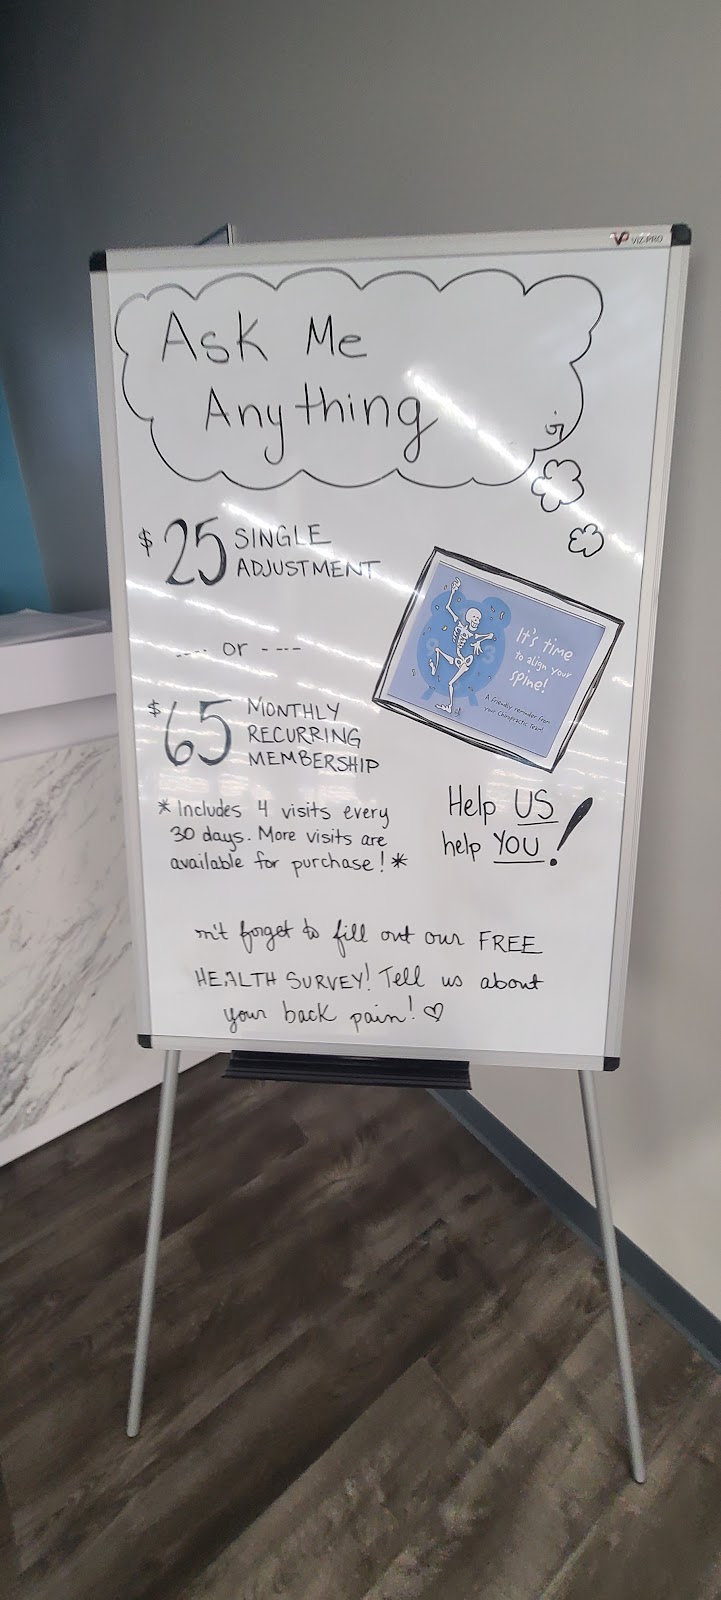 VIZ-PRO
Ask Me
Anything
$25 SINGLE
ADJUSTMENT
---- or ----
$65 MONTHLY
RECURRING
MEMBERSHIP
*Includes 4 visits every
30 days. More visits are
available for purchase!*
It's time
to align your
spine!
A friendly reminder from
your Chiropractic Team!
9 3
Help US
help YOU!
n't forget to fill out our FREE
HEALTH SURVEY! Tell us about
your back pain! ♡